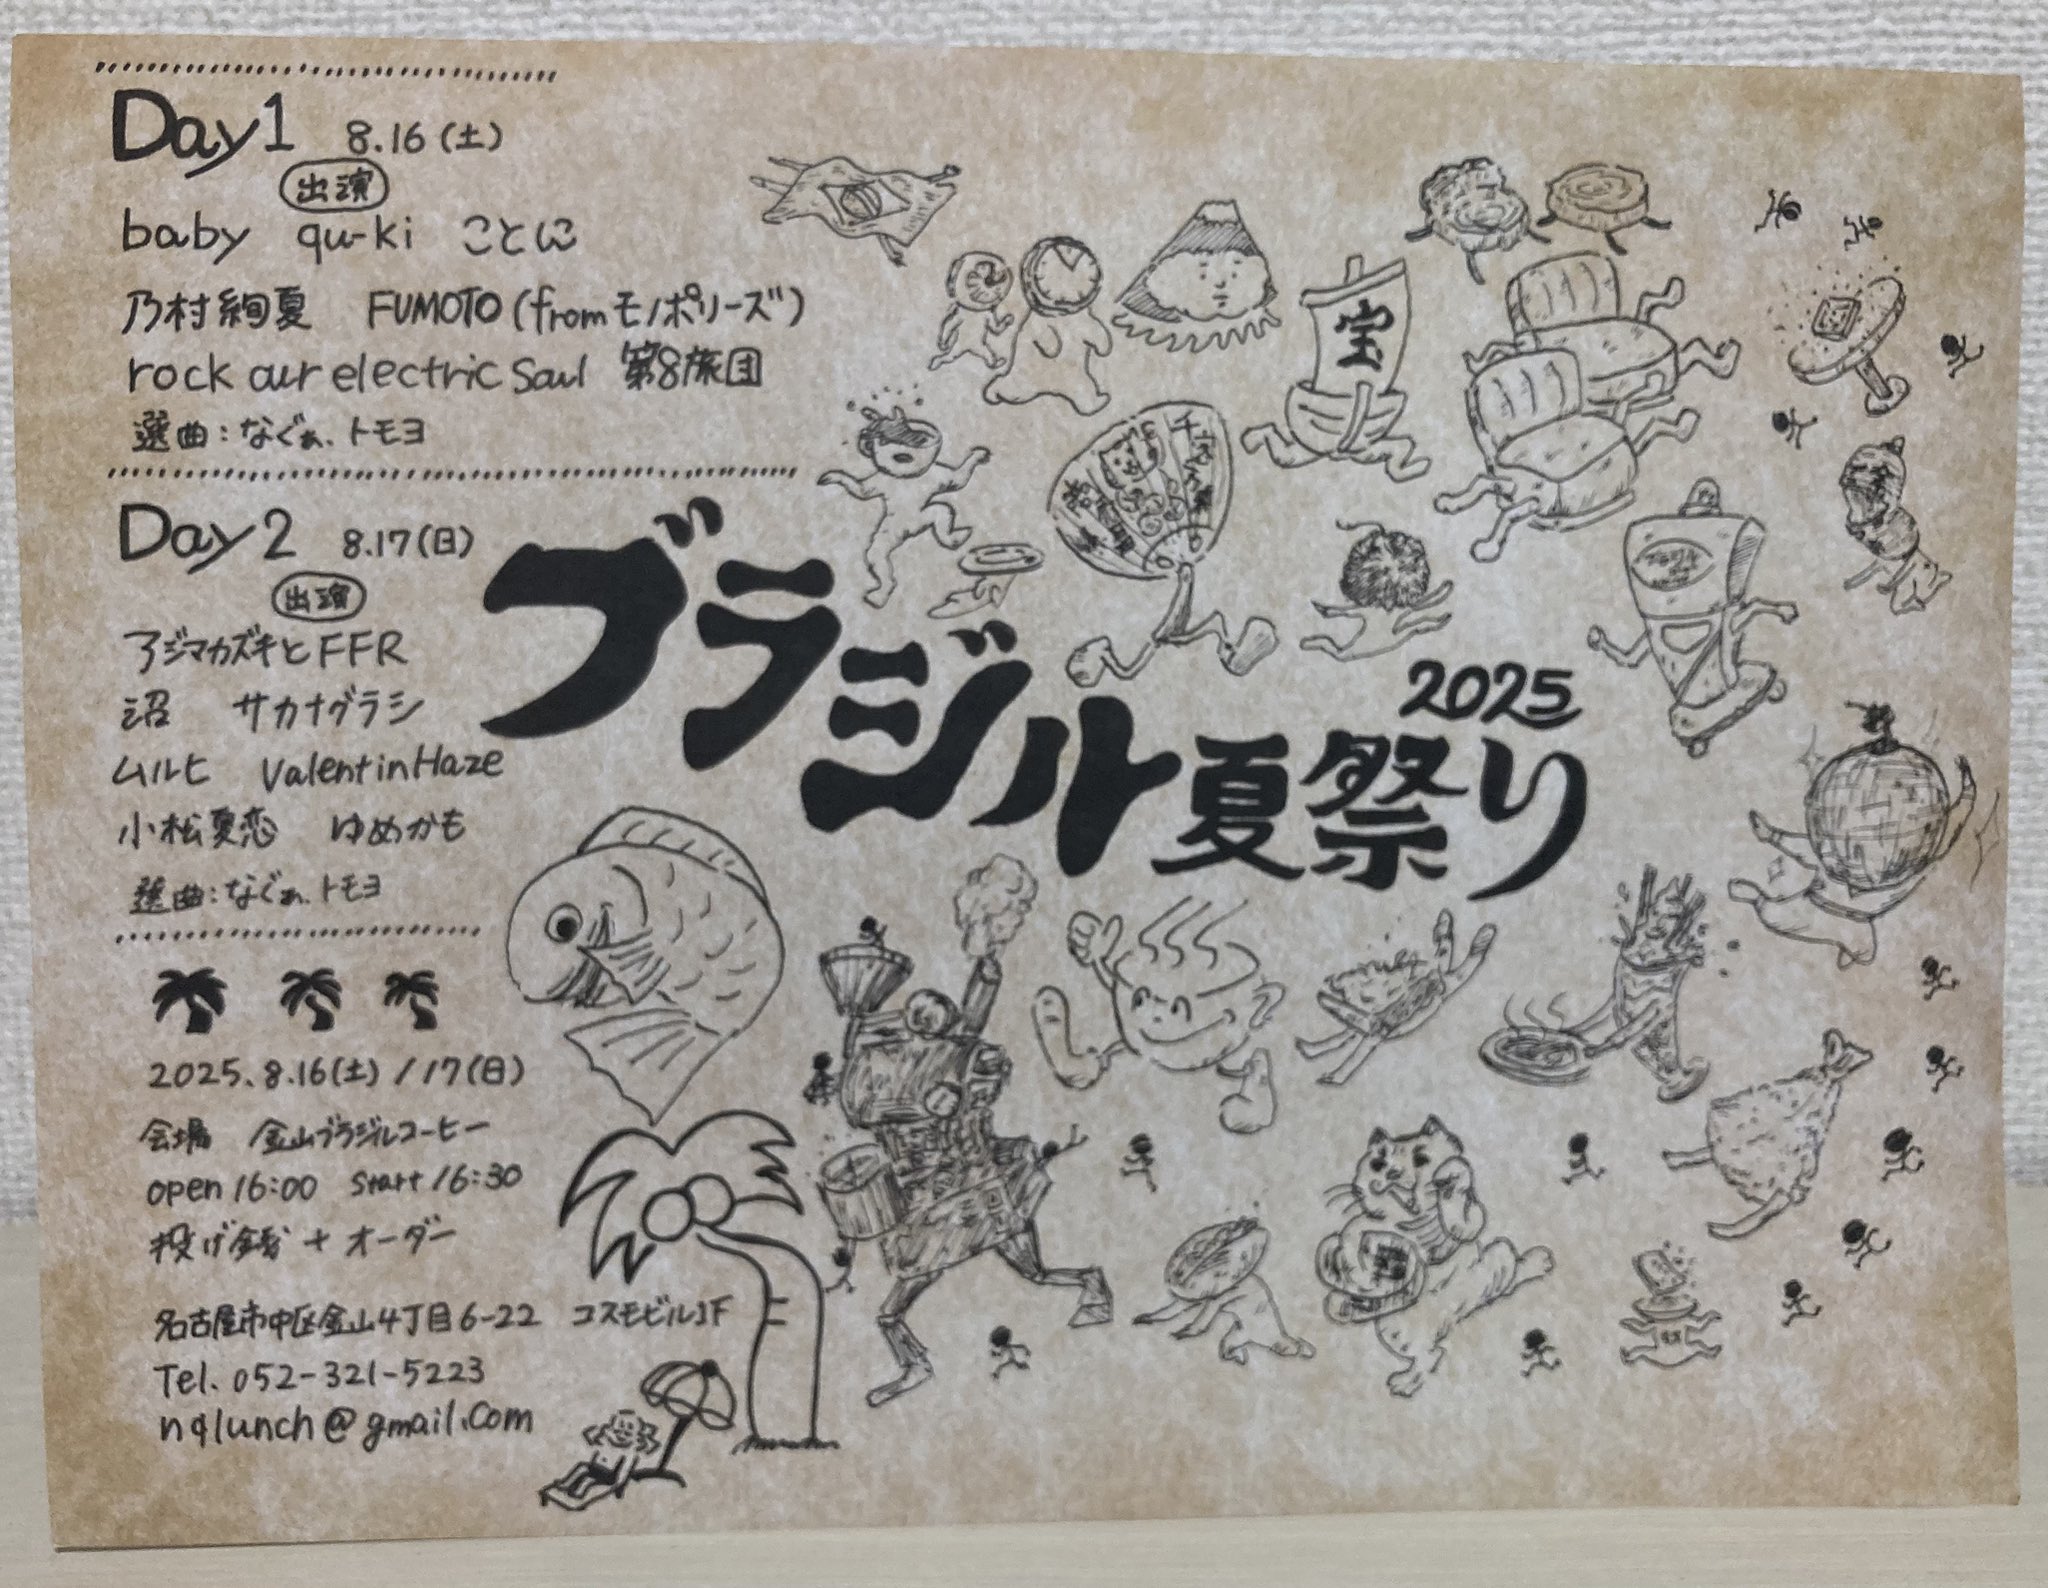 Day1 8.16(土)
出演
baby qu-ki ことに
乃村絢夏 FUMOTO(fromモノポリーズ)
rock our electric soul 第8旅団
選曲:なぐぁ、トモヨ
Day2 8.17(日)
出演
アジマカズキとFFR
沼 サカナグラシ
ムルヒ ValentinHaze
小松夏恋 ゆめかも
選曲:なぐぁ、トモヨ
ブラジル夏祭り 2025
宝
2025.8.16(土)/17(日)
会場 金山ブラジルコーヒー
open 16:00 start 16:30
投げ銭+オーダー
名古屋市中区金山4丁目6-22 コスモビル1F
Tel. 052-321-5223
nqlunch@gmail.com